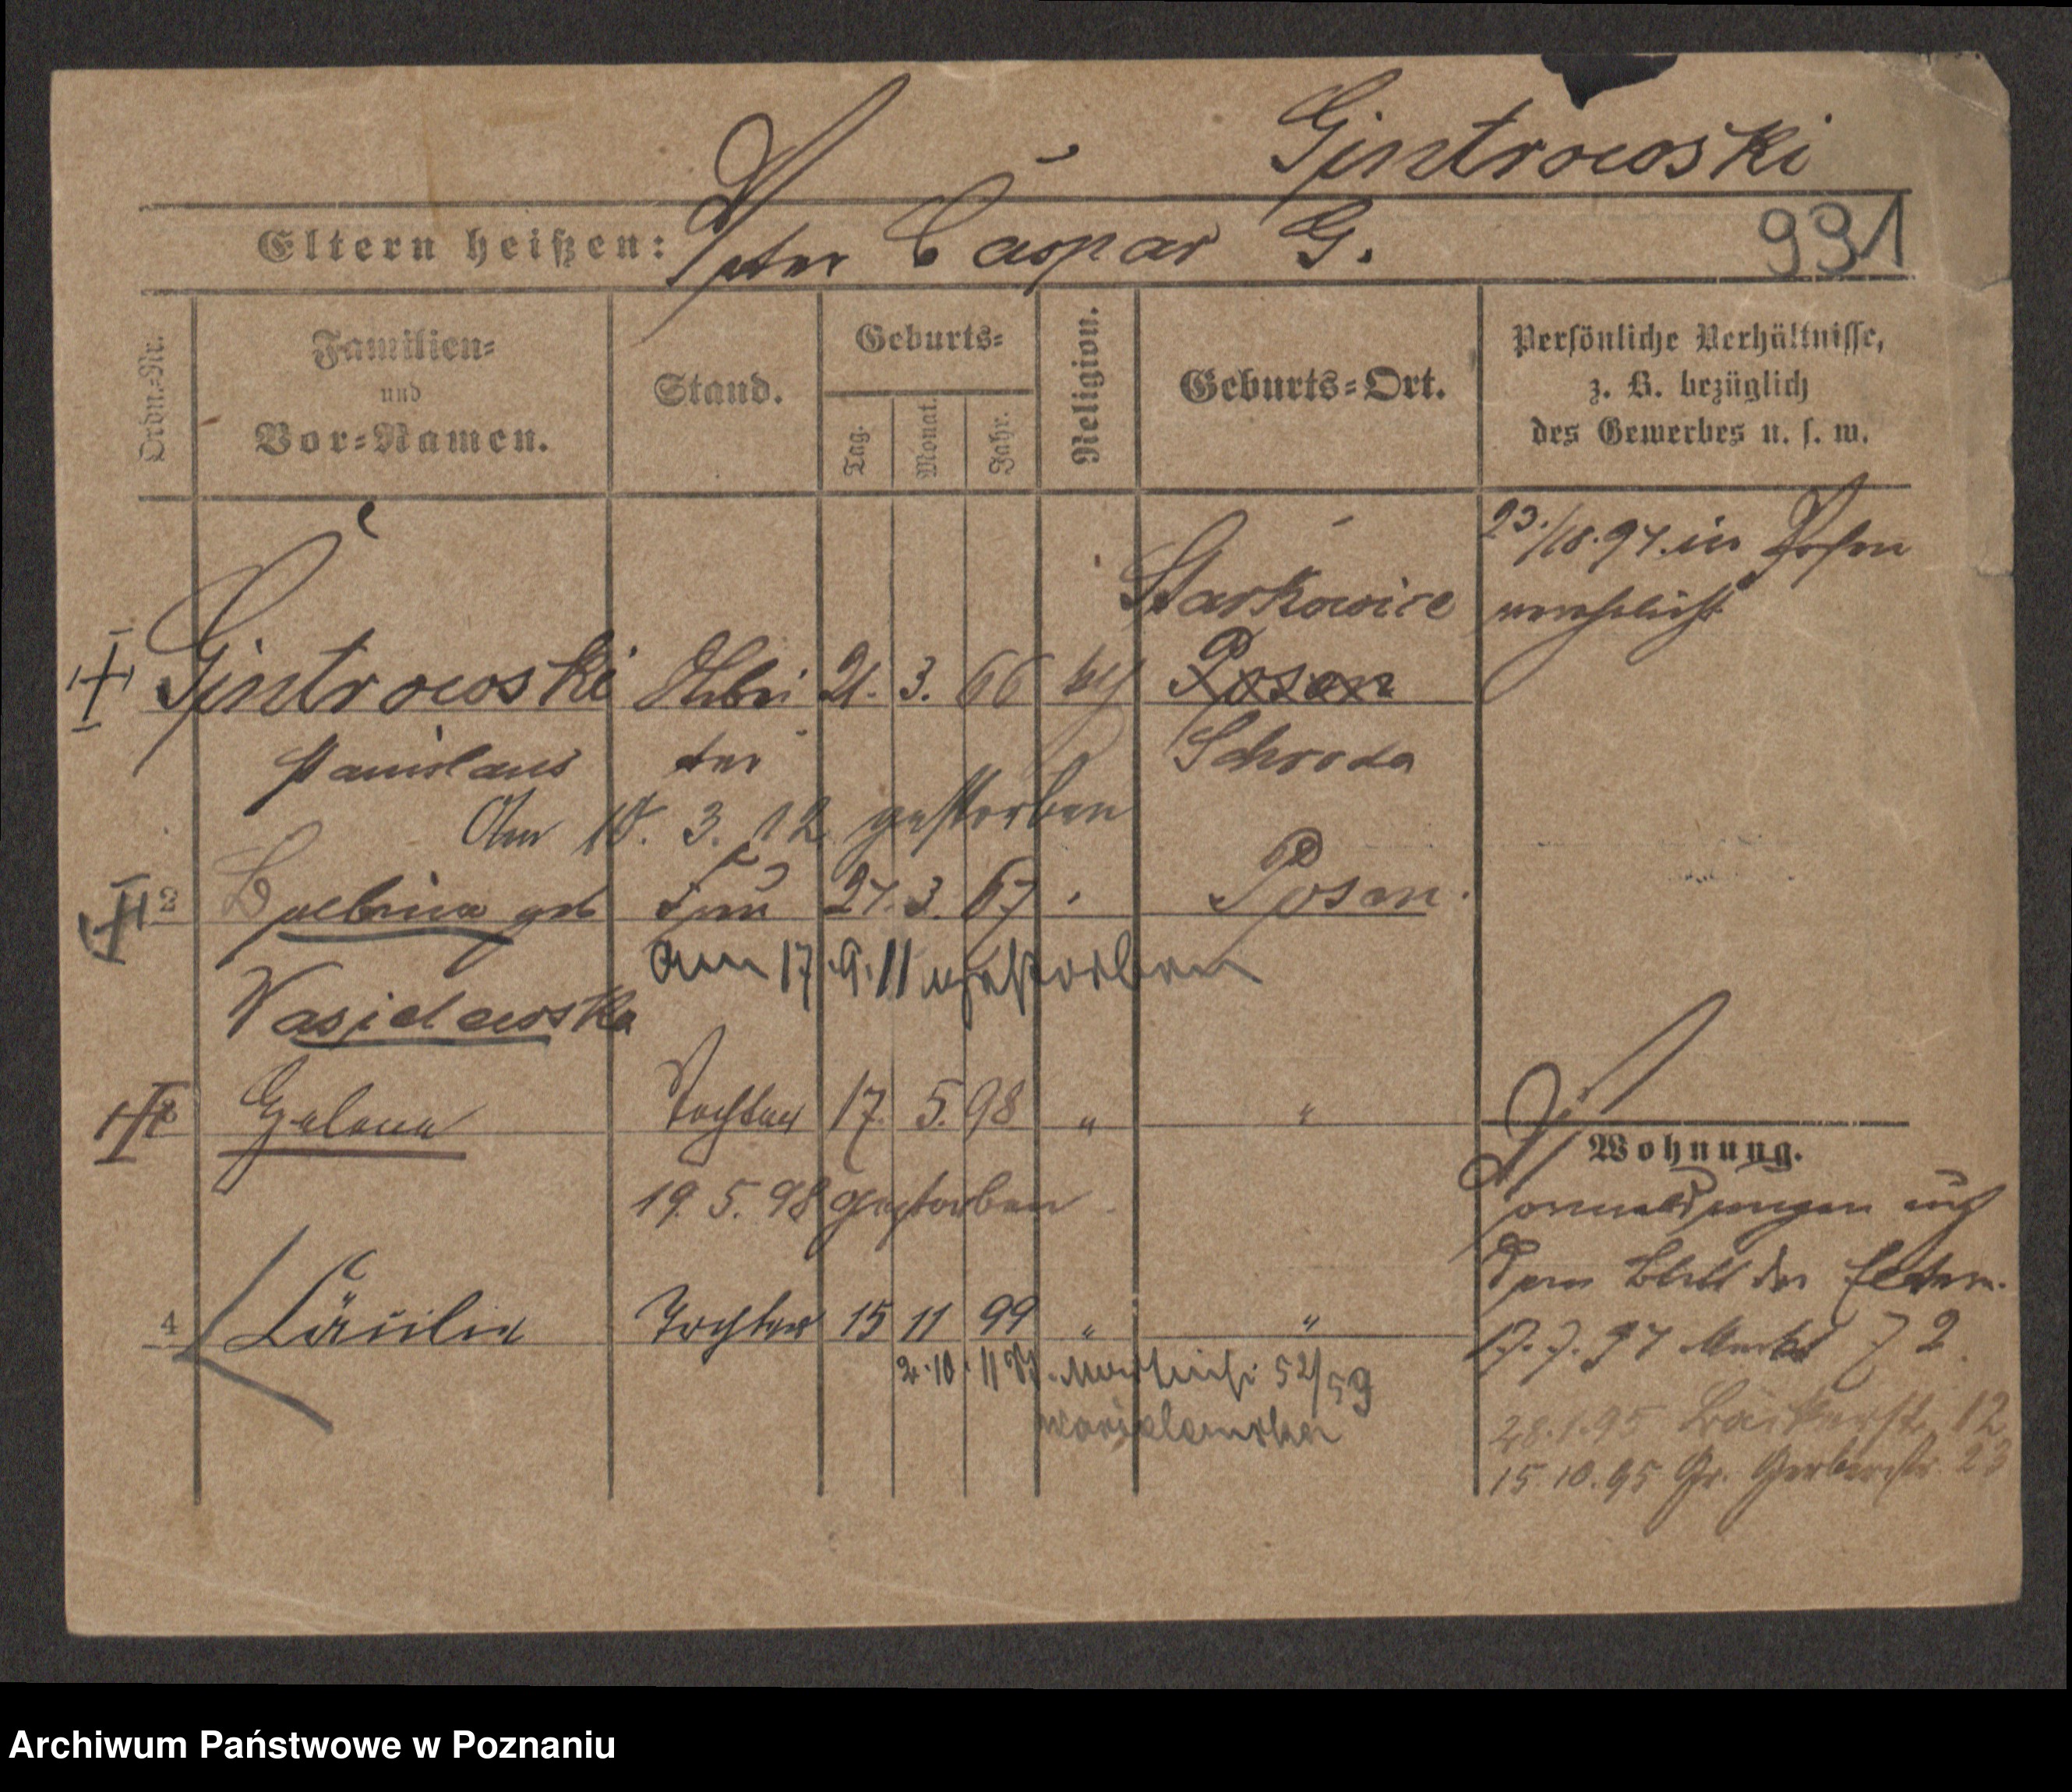 Gintrowski
Eltern heißen: Vater Caspar G.
931
Ordn.-Nr.
Familien-
und
Vor-Namen.
Stand.
Geburts-
Tag.
Monat.
Jahr.
Religion.
Geburts-Ort.
Persönliche Verhältnisse,
z. B. bezüglich
des Gewerbes u. s. w.
23./10.97. in Posen
verehelicht
Starkowice
Gintrowski Arbei 21. 3. 66 kth Posen
Stanislaus ter Schroda
Am 10. 3. 12 gestorben
2 geb Frau 27. 3. 67 Posen.
am 17.9.11 gestorben
Wasielewska
3 Helena Tochter 17. 5. 98 " "
19. 5. 98 gestorben
4 Cäcilie Tochter 15 11 99 " "
2.10.11 52/59
Wasielewska
Wohnung.
auf
dem Blatt der Eltern.
17.7.97 Markt 72
28.1.95 Bäckerstr. 12
15.10.95 Gr. Gerberstr. 23
Archiwum Państwowe w Poznaniu